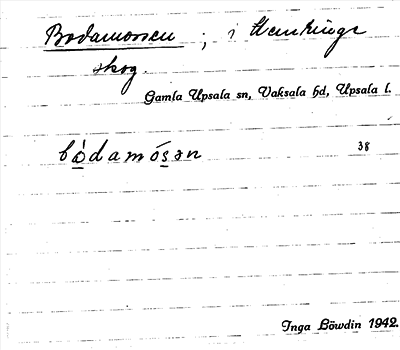 Bodamossen ; i Wenkinge
skog.
Gamla Upsala sn, Vaksala hd, Upsala l.
bòdamósən 38
Inga Löwdin 1942.